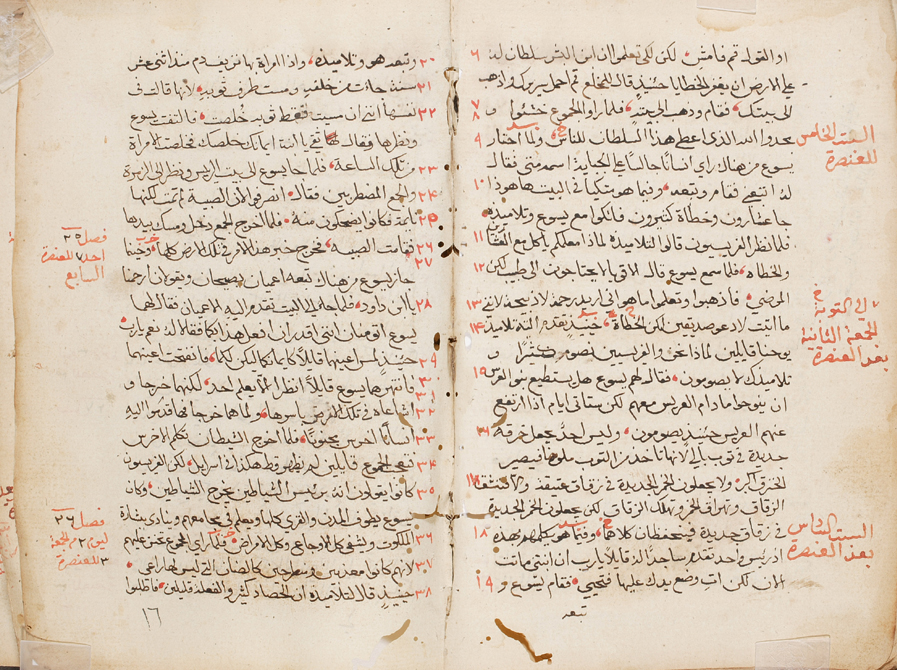 او القول قم فامش لكن لكي تعلموا ان لابن البشر سلطان له ٦
علي الارض ان يغفر الخطايا حينيذ قال للمخلع قم احمل سريرك واذهب
الي بيتك فقام وذهب الي بيته فلما راو الجموع خشوا و ٧ ٨
مجدوا الله الذي اعطي هذا السلطان للناس ولما اجتاز ٩
السبت الخامس
للعنصرة
يسوع من هناك راي انسانًا جالسًا علي الجباية اسمه متي فقال
له اتبعني فقام وتبعه وفيما هو متكيا في البيت هاهوذا ١٠
جا عشارون وخطاة كثيرون فاتكوا مع يسوع وتلاميذه
فلما نظر الفريسيون قالوا لتلاميذه لماذا معلمكم ياكل مع العشارين ١١
والخطاه فلما سمع يسوع قال الاقويا لا يحتاجون الي طبيب لكن ١٢
المرضي فاذهبوا وتعلموا ما هو اني اريد رحمة لا ذبيحة لانني ١٣
ما اتيت لادعو صديقين لكن الخطاة حينيذ تقدم اليه تلاميذ ١٤
التوبة
الجمعة الثانية
بعد العنصرة
يوحنا قايلين لماذا نحن والفريسين نصوم كثيرًا و
تلاميذك لا يصومون فقال لهم يسوع هل يستطيع بنو العرس ١٥
ان ينوحوا مادام العريس معهم لكن ستاتي ايام اذا ارتفع
عنهم العريس حينيذ يصومون وليس احد يجعل خرقة ١٦
جديدة في ثوب بالي لانها تاخذ من الثوب ملوها فيصير
الخرق اكبر ولا يجعلون الخمر الجديدة في زقاق عتيقة والا تنشق ١٧
الزقاق وتهراق الخمر وتهلك الزقاق لكن يجعلون الخمر الجديدة
في زقاق جديدة فيتحفظان كلاهما وفيما هو يكلمهم بهذه ١٨
السبت السادس
بعد العنصرة
اذ ريس واحد تقدم ساجدًا له قايلًا يارب ان ابنتي ماتت
الان لكن ات وضع يدك عليها فتحيي فقام يسوع و ١٩
تبعه
٢٠ وتبعه هو وتلاميذه واذا امراة بها نزيف دم منذ اثني عشر
٢١ سنة جات من خلفه ومست طرف ثوبه لانها قالت في
٢٢ نفسها انني ان مسيت فقط ثوبه خلصت فالتفت يسوع
ونظرها فقال ثقي يا ابنة ايمانك خلصك فخلصت الامراة
٢٣ من تلك الساعة فلما جا يسوع الي بيت الريس ونظر الي الزمرة
٢٤ والجمع المضطربين فقال انصرفوا لان الصبية لم تمت لكنها
٢٥ نايمة فكانوا يضحكون منه فلما اخرج الجمع دخل ومسك يدها
٢٦ فقامت الصبيه فخرج خبر هذا الامر في تلك الارض كلها وحينما
فصل ٢٥
احد ٧ للعنصرة
السابع
٢٧ جاز يسوع من هناك تبعه اعميان يصيحان ويقولان ارحمنا
٢٨ يا ابن داود فلما جا الي البيت تقدم اليه الاعميان فقال لهما
يسوع اتومنان انني اقدر ان افعل هذا لكما فقالا له نعم يارب
٢٩ حينيذ لمس اعينهما قايلًا كايمانكما ليكن لكما فانفتحت اعينهما
٣٠ فانتهرهما يسوع قايلًا انظرا الا يعلم احد لكنهما خرجا و
٣١ ٣٢ اشاعاه في تلك الارض باسرها ولما هما خرجا هاقد قدموا اليه
٣٣ انسانًا اخرس مجنونًا فلما اخرج الشيطان تكلم الاخرس
٣٤ فتعجب الجموع قايلين لم يظهر قط هكذا في اسراييل لكن الفريسيون
٣٥ كانوا يقولون انه بريس الشياطين يخرج الشياطين وكان
يسوع يطوف المدن والقري كلها ويعلم في مجامعهم وينادي ببشارة
فصل ٢٦
ليوم ٢ من الجمعة
٣ للعنصرة
٣٦ الملكوت ويشفي كل الاوجاع وكل الامراض فلما راي الجموع تحنن عليهم
٣٧ لانهم كانوا معذبين ومنطرحين كالضان التي ليس لها راعي
٣٨ حينيذ قال لتلاميذه ان الحصاد كثير والفعلة قليلين فاطلبوا
١٦